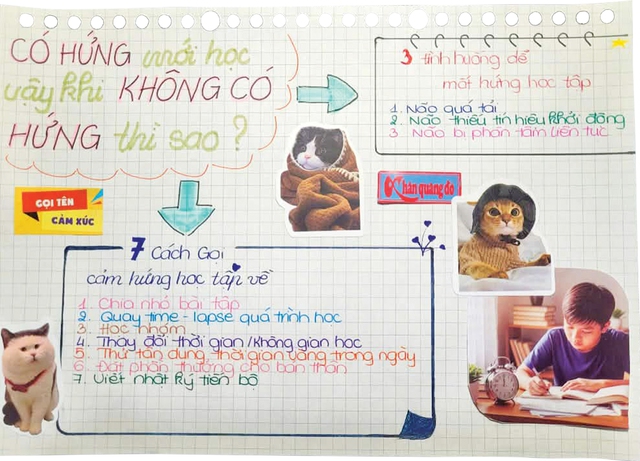 CÓ HỨNG mới học
vậy khi KHÔNG CÓ
HỨNG thì sao?
3 tình huống dễ
mất hứng học tập
1. Não quá tải
2. Não thiếu tín hiệu khởi động
3 Não bị phân tâm liên tục
GỌI TÊN
CẢM XÚC
Khăn quàng đỏ
7 Cách Gọi
cảm hứng học tập về
1. Chia nhỏ bài tập
2. Quay time - lapse quá trình học
3. Học nhóm
4. Thay đổi thời gian/không gian học
5. Thử tận dụng thời gian vàng trong ngày
6. Đặt phần thưởng cho bản thân
7. Viết nhật ký tiến bộ